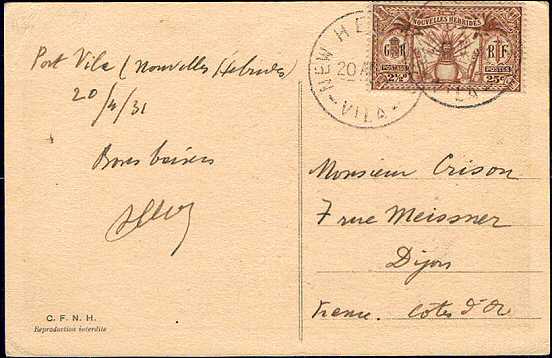 Port Vila (Nouvelles Hébrides)
20/4/31
Bons baisers
C. F. N. H.
Reproduction interdite
NEW HE
20 A
VILA
NOUVELLES HEBRIDES
G R
R F
POSTAGE
POSTES
2½d
25c
LA
Monsieur Crison
7 rue Meissner
Dijon
France. Cotes d'Or